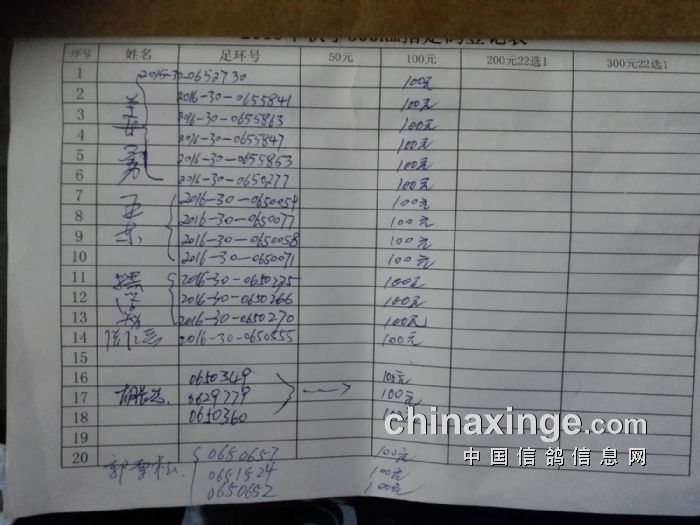 序号 姓名 足环号 50元 100元 200元22选1 300元22选1
1 2015-30-0652730 100元
2 2016-30-0655841 100元
3 2016-30-0655863 100元
4 2016-30-0655847 100元
5 2016-30-0655853 100元
6 2016-30-0650277 100元
7 2016-30-0650054 100元
8 2016-30-0650077 100元
9 2016-30-0650058 100元
10 2016-30-0650071 100元
11 2016-30-0650275 100元
12 2016-30-0650266 100元
13 2016-30-0650270 100元
14 2016-30-0650555 100元
15
16 0650349 100元
17 0629779 100元
18 0650360
19
20 0650657 100元
0651524 100元
0650652 100元
chinaxinge.com
中国信鸽信息网